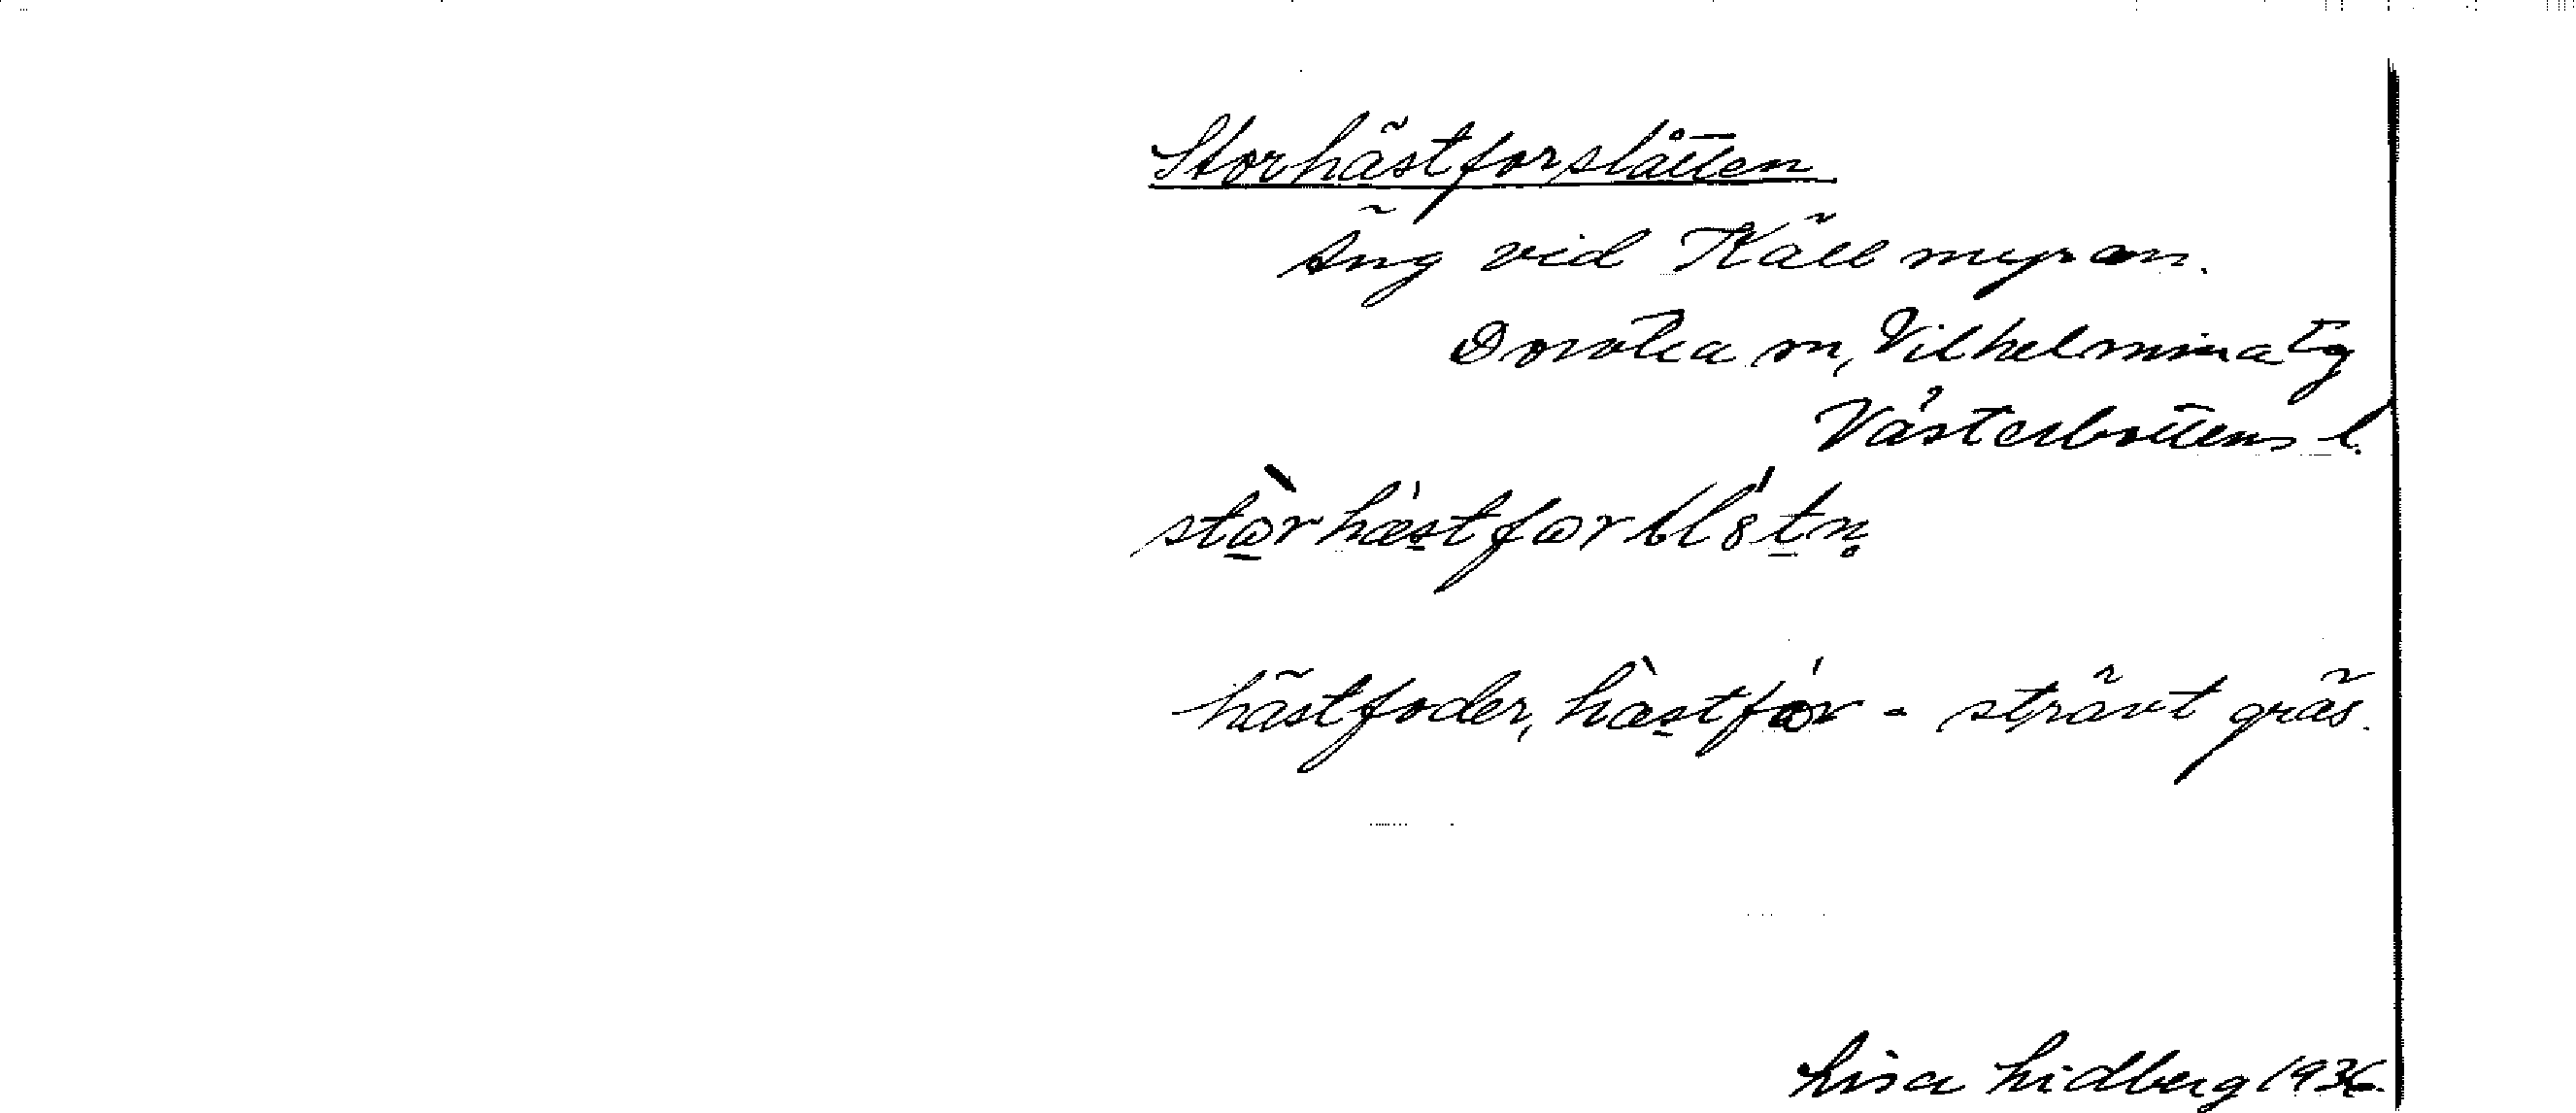 Storhästforslåtten
Äng vid Källmyran.
Dorotea m, Vilhelmina tg
Västerbottens l.
hästfoder, hæstfòr - strävt gräs.
Lisa Lidberg 1936.